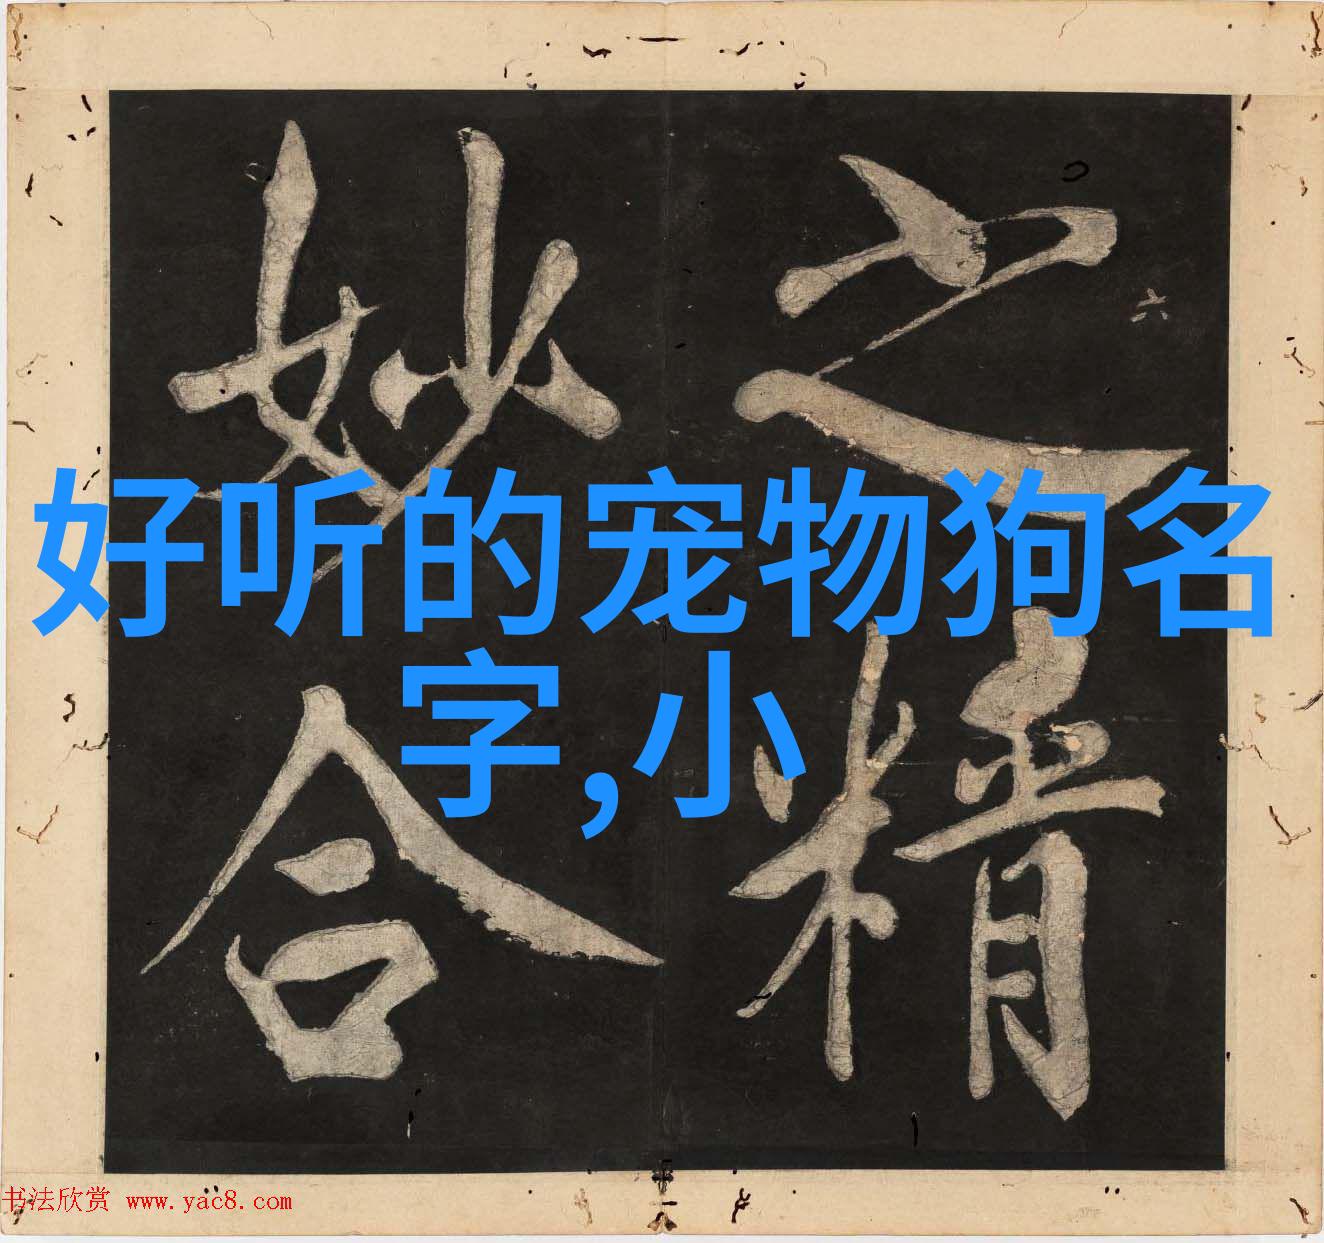 之精
妙合
六
好听的宠物狗名
字,小
书法欣赏 www.yac8.com